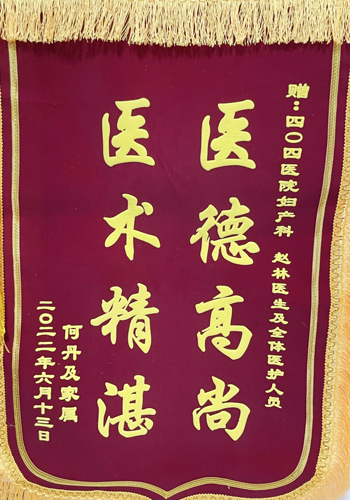 赠：四〇四医院妇产科 赵林医生及全体医护人员
医德高尚
医术精湛
何丹及家属
二〇二二年六月十三日